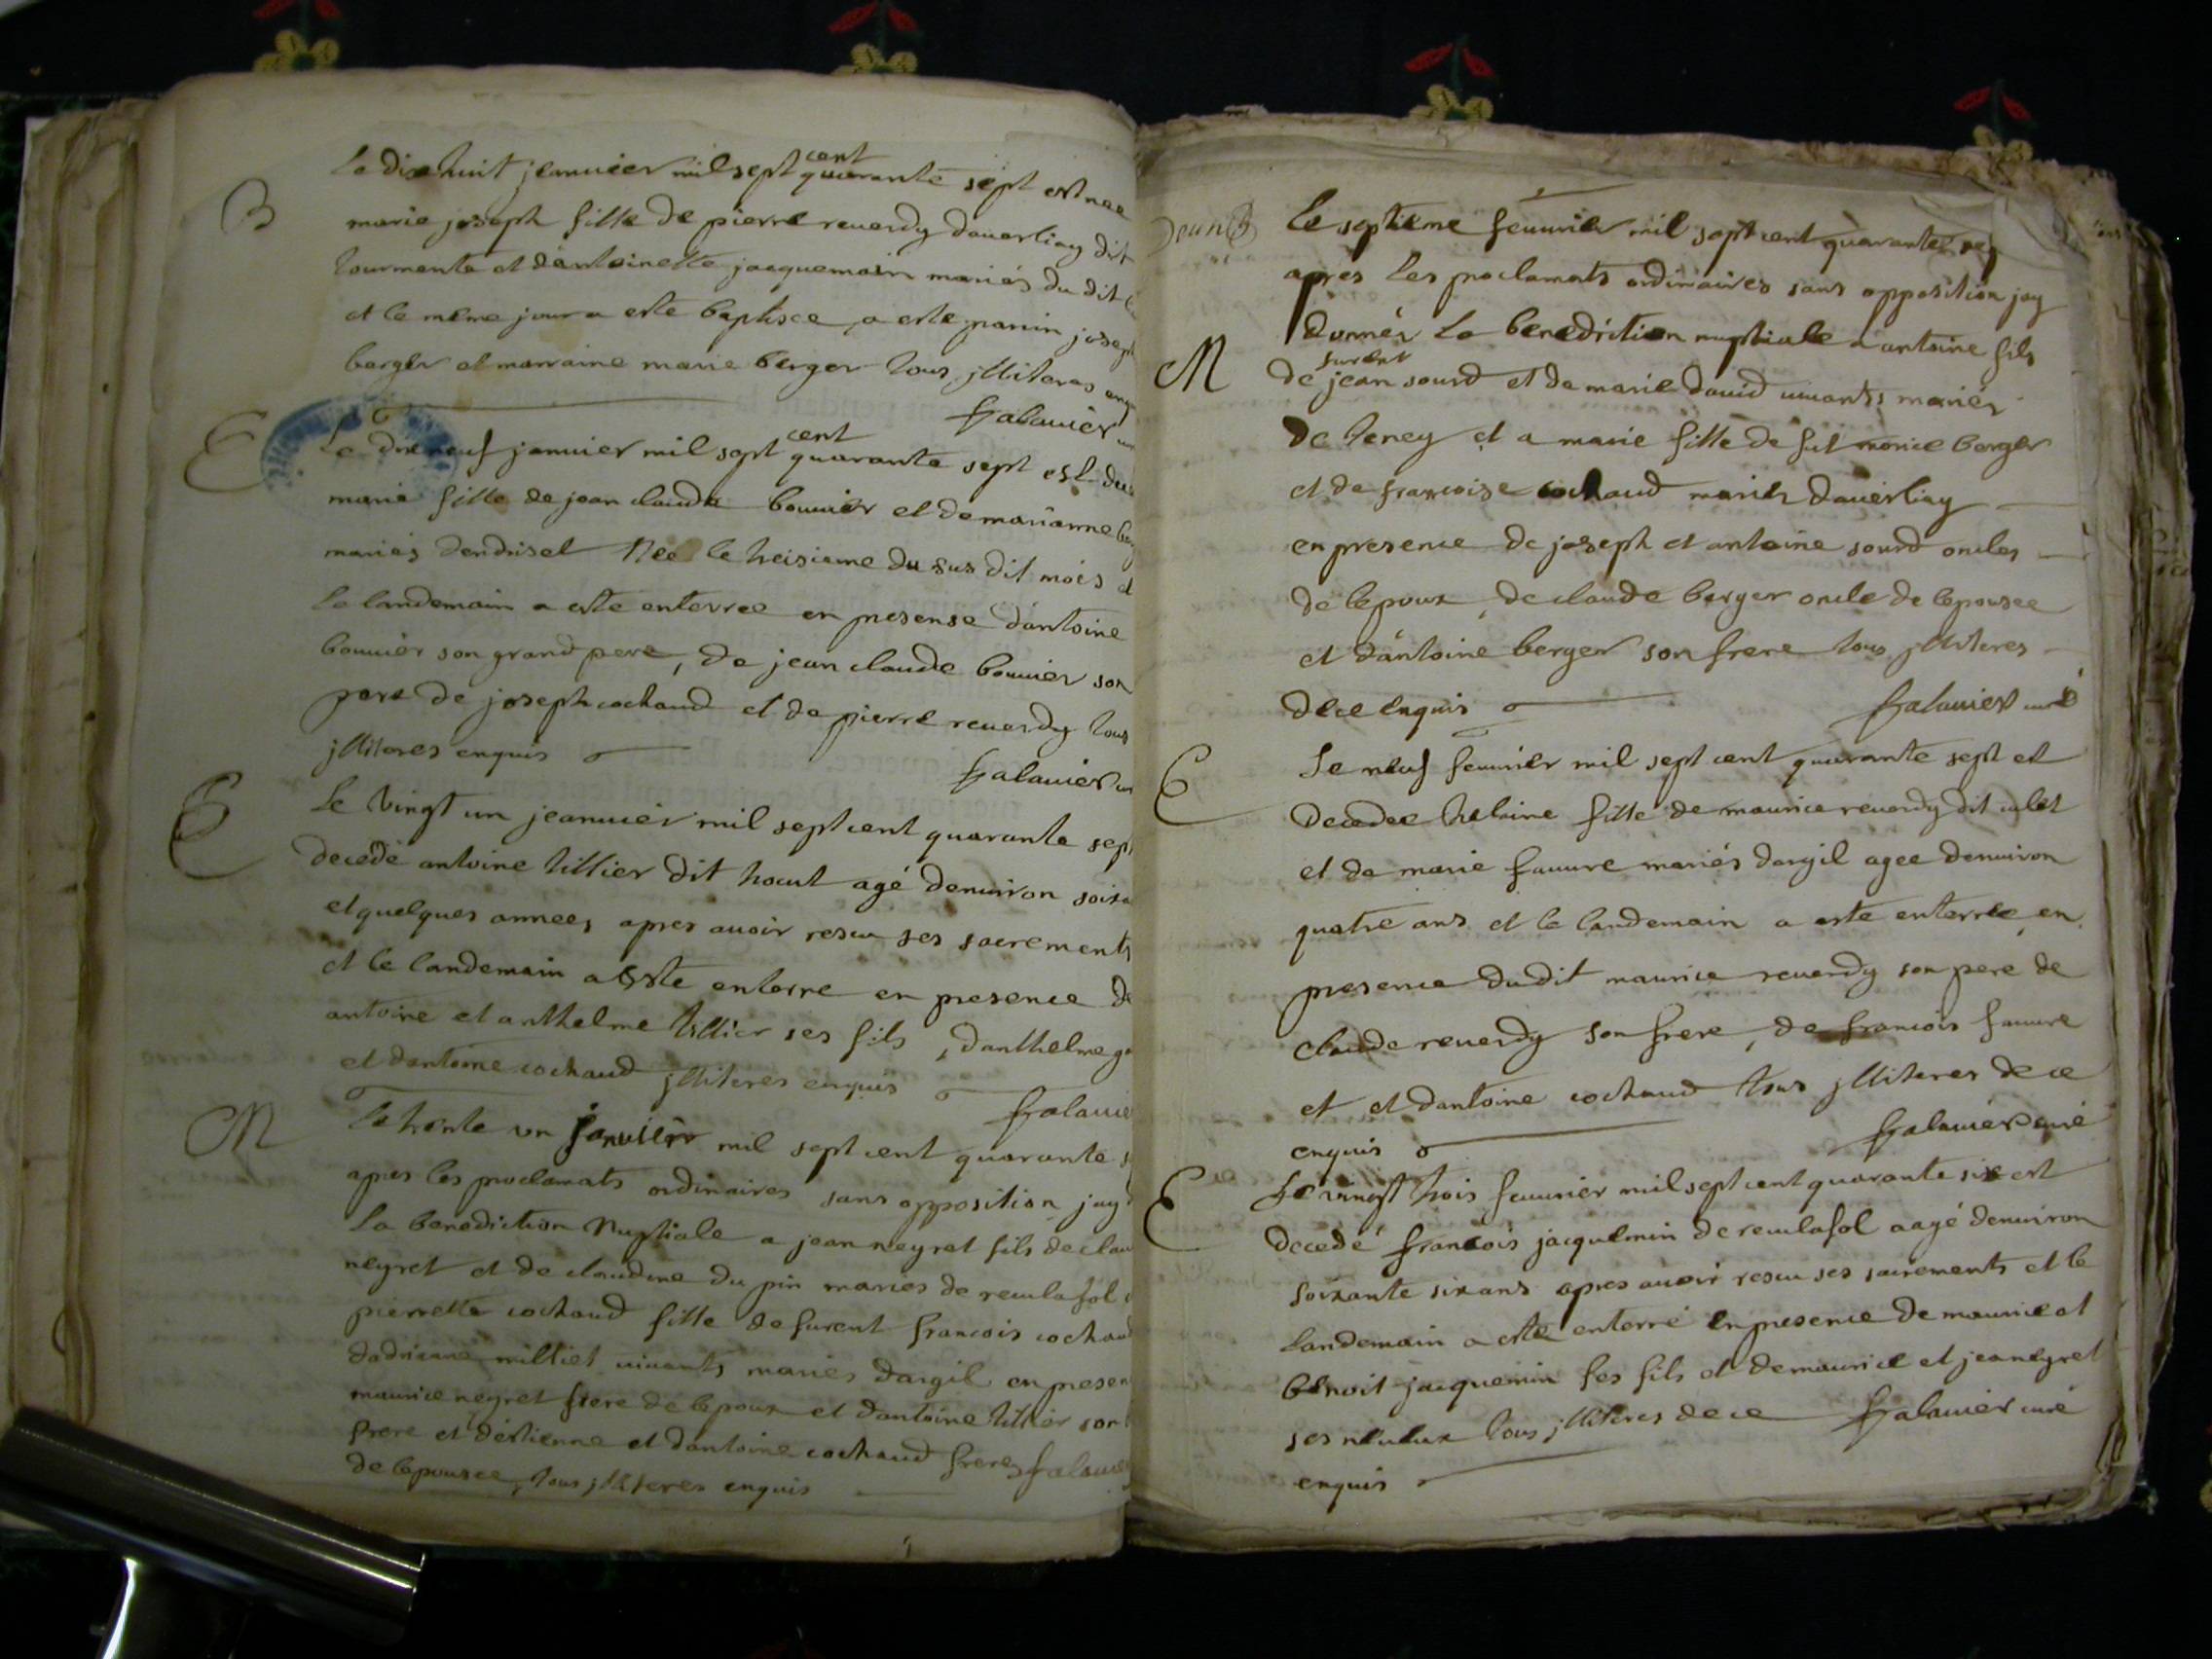 B
Le dix huit jeanuier mil sept cent quarante sept est nee
marie joseph fille de pierre reuerdy dauerliay dit
tourmente et dantoinette jacquemoin mariés du dit
et le meme jour a este baptisee, a este parrin joseph
berger et marraine marie berger tous jlliteres enq
Galauier
E
Le dix neuf januier mil sept cent quarante sept est
marie fille de jean claude bouuier et de marianne
mariés dendrisel Nee le treisieme du sus dit mois et
le landemain a este enterree en presense dantoine
bouuier son grand pere, de jean claude bouuier son
pere de joseph cochaud et de pierre reuerdy tous
jlliteres enquis
Galauier
E
Le vingt un jeanuier mil sept cent quarante sept
decedé antoine tillier dit agé denuiron soixa
et quelques annees apres auoir rescu ses sacrements
et le landemain a este enterre en presence de
antoine et anthelme tillier ses fils, danthelme
et dantoine cochaud jlliteres enquis
Galauie
M
Le trente un januier mil sept cent quarante s
apres les proclamats ordinaires sans opposition jay
La benediction Nuptiale a jean neyret fils de clau
neyret et de claudine du pin maries de reculafol
pierrette cochaud fille de furent francois cochaud
dadrienne milliet uiuants mariés dargil en presen
maurice neyret frere de lepoux et dantoine tillier son
frere et destienne et dantoine cochaud freres Galauie
de lepousee, tous jlliteres enquis
Le septieme feuurier mil sept cent quarante sep
apres les proclamats ordinaires sans opposition jay
donnés La benediction nuptiale a antoine fils
M
de furent jean sourd et de marie dauid uiuants mariés
de teney et a marie fille de fut morice berger
et de francoise cochaud mariés dauerliay
en presence de joseph et antoine sourd oncles
de lepoux, de claude berger oncle de lepousee
et dantoine berger son frere tous jlliteres
de ce enquis
Galauier curé
E
Le neuf feuurier mil sept cent quarante sept est
decedee helaine fille de maurice reuerdy dit
et de marie fauure mariés dargil agee denuiron
quatre ans et le landemain a este enterree en
presence dudit maurice reuerdy son pere de
claude reuerdy son frere, de francois fauure
et et dantoine cochaud tous jlliteres de ce
enquis
Galauier curé
E
Le vingt trois feuurier mil sept cent quarante six est
decedé francois jacquemin de reculafol aagé denuiron
soixante six ans apres auoir rescu ses sacrements et le
landemain a esté enterré en presence de maurice et
benoit jacquemin ses fils et de maurice et jean neyret
ses neueux tous jlliteres de ce Galauier curé
enquis